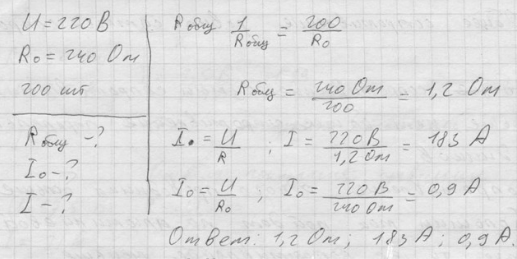 U = 220 В
R₀ = 240 Ом
200 шт
R общ - ?
I₀ - ?
I - ?
R общ 1/R общ = 200/R₀
R общ = 240 Ом/200 = 1,2 Ом
I = U/R ; I = 220 В/1,2 Ом = 183 А
I₀ = U/R₀ ; I₀ = 220 В/240 Ом = 0,9 А
Ответ: 1,2 Ом; 183 А; 0,9 А.